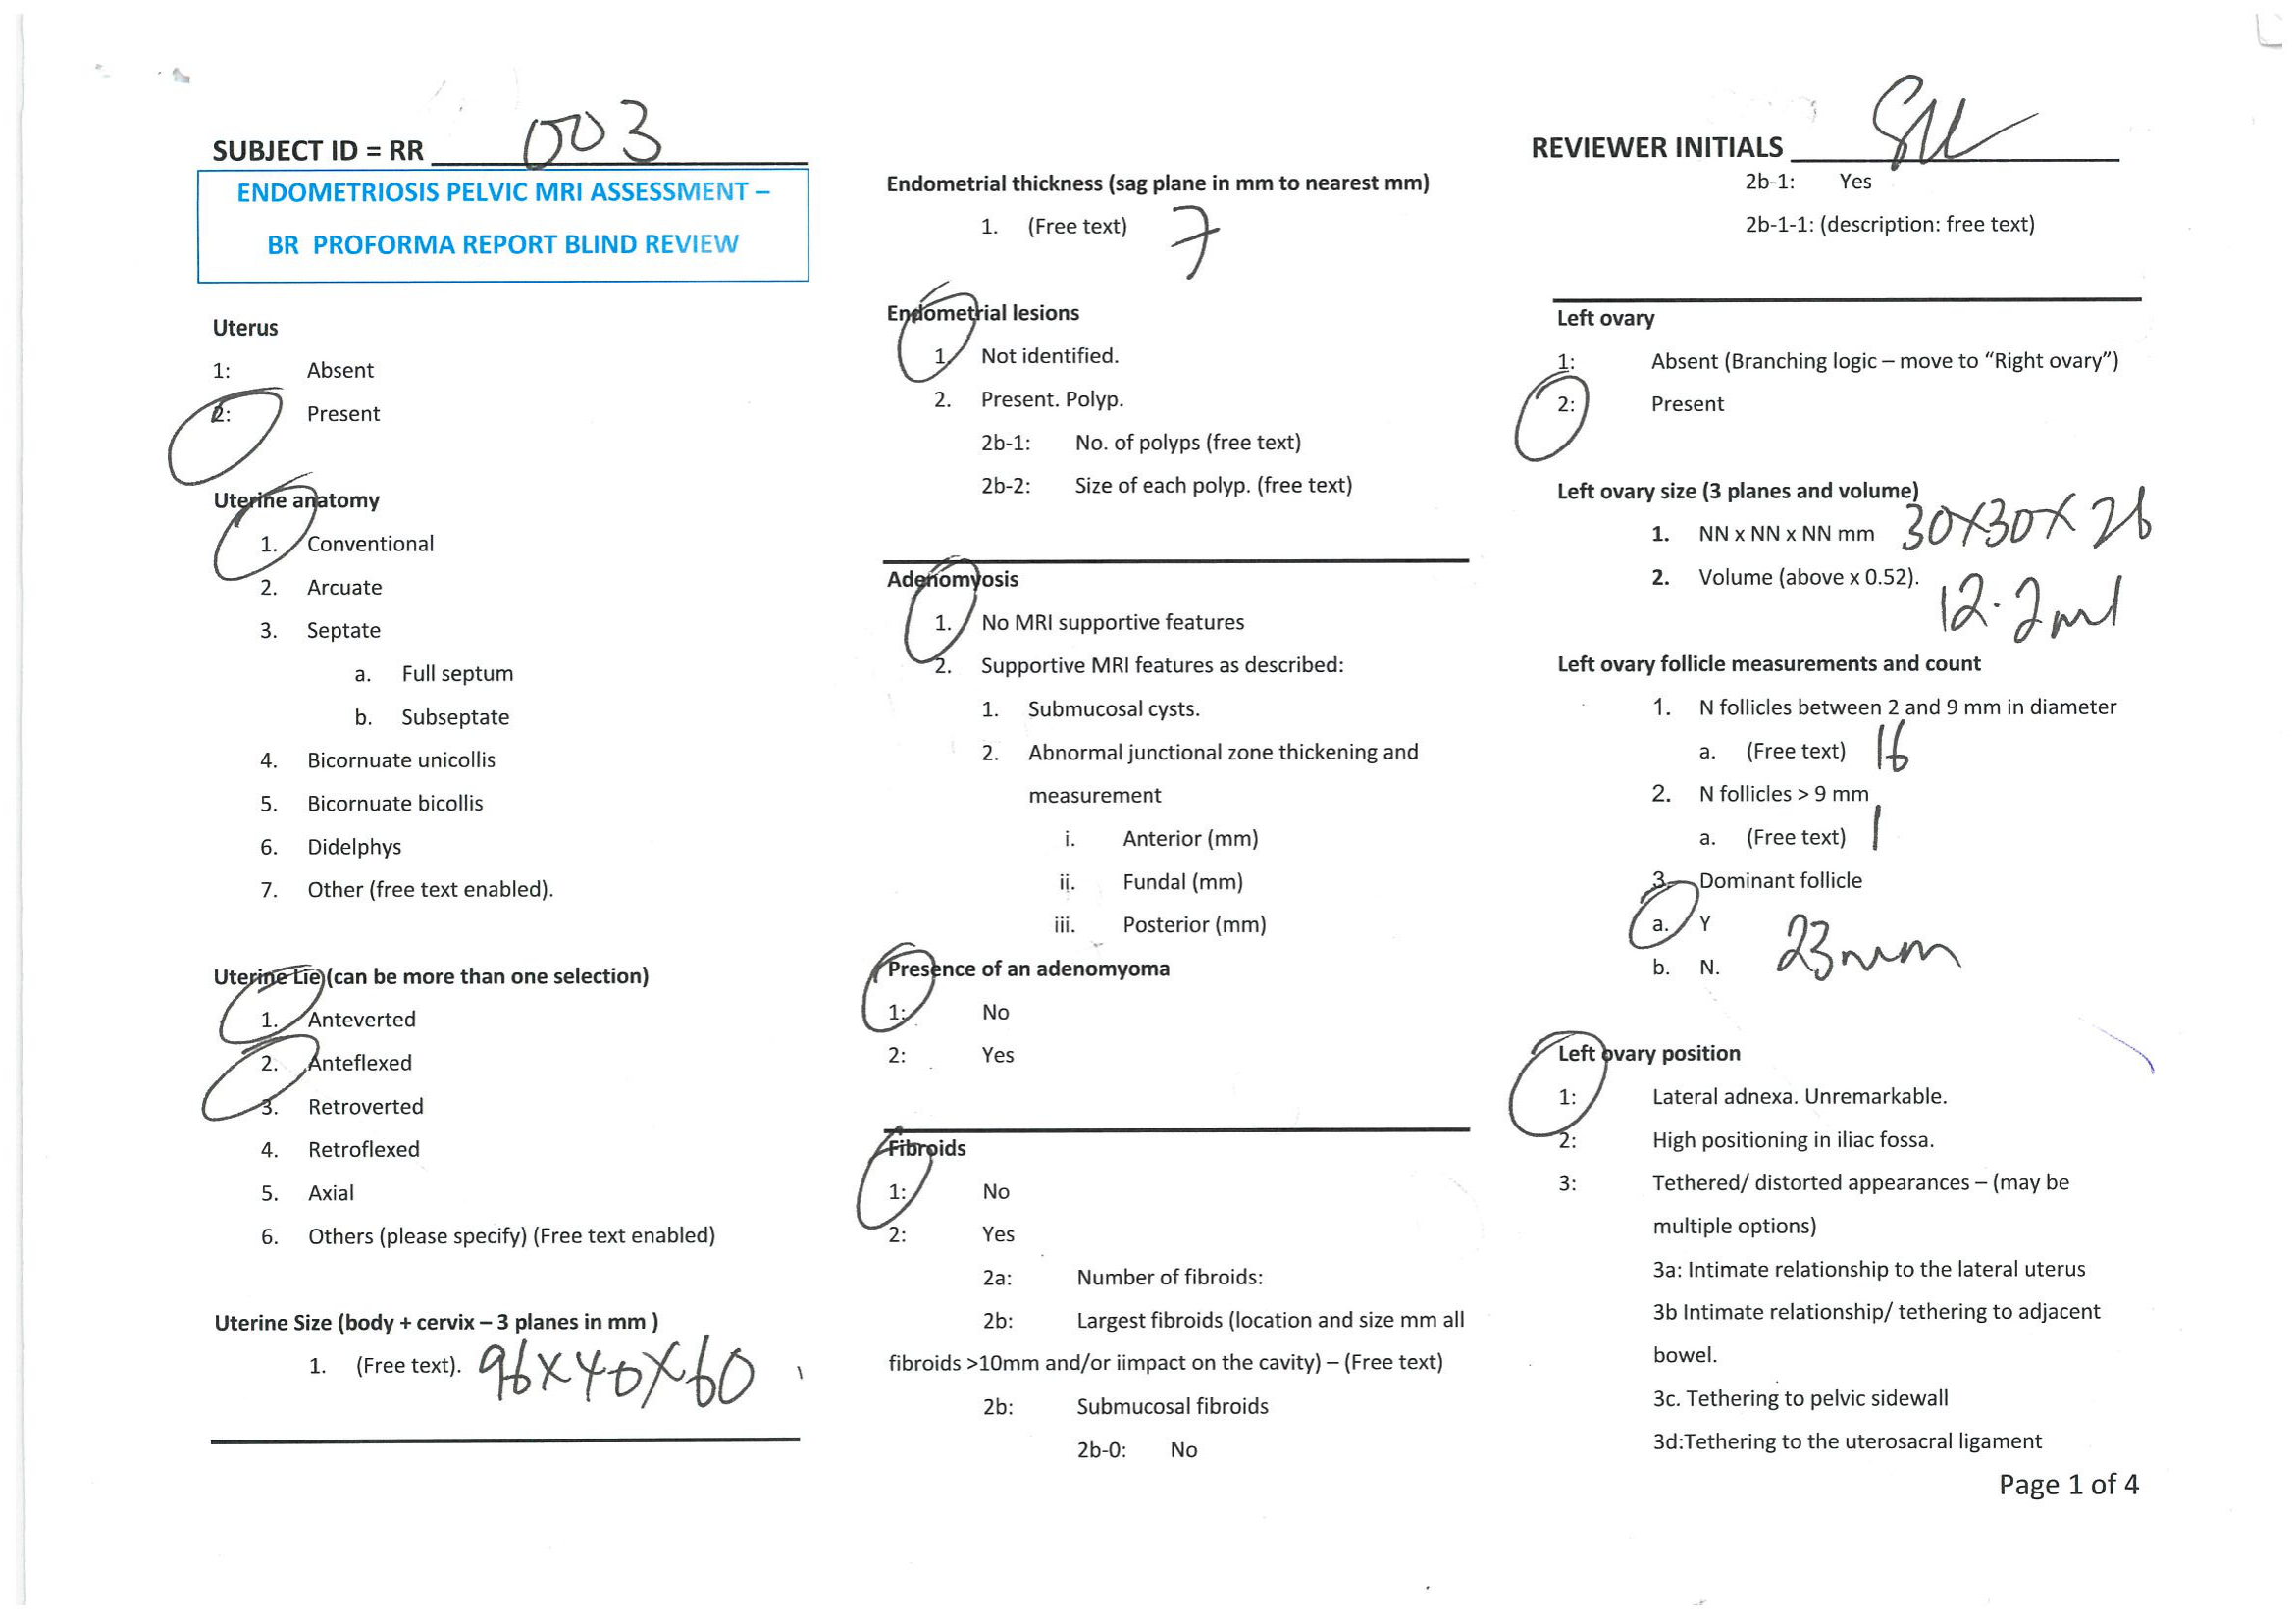 SUBJECT ID = RR 003
ENDOMETRIOSIS PELVIC MRI ASSESSMENT –
BR PROFORMA REPORT BLIND REVIEW
Uterus
1: Absent
2: Present
Uterine anatomy
1. Conventional
2. Arcuate
3. Septate
a. Full septum
b. Subseptate
4. Bicornuate unicollis
5. Bicornuate bicollis
6. Didelphys
7. Other (free text enabled).
Uterine Lie (can be more than one selection)
1. Anteverted
2. Anteflexed
3. Retroverted
4. Retroflexed
5. Axial
6. Others (please specify) (Free text enabled)
Uterine Size (body + cervix – 3 planes in mm )
1. (Free text). 96x40x60
Endometrial thickness (sag plane in mm to nearest mm)
1. (Free text) 7
Endometrial lesions
1. Not identified.
2. Present. Polyp.
2b-1: No. of polyps (free text)
2b-2: Size of each polyp. (free text)
Adenomyosis
1. No MRI supportive features
2. Supportive MRI features as described:
1. Submucosal cysts.
2. Abnormal junctional zone thickening and
measurement
i. Anterior (mm)
ii. Fundal (mm)
iii. Posterior (mm)
Presence of an adenomyoma
1: No
2: Yes
Fibroids
1: No
2: Yes
2a: Number of fibroids:
2b: Largest fibroids (location and size mm all
fibroids >10mm and/or iimpact on the cavity) – (Free text)
2b: Submucosal fibroids
2b-0: No
REVIEWER INITIALS
2b-1: Yes
2b-1-1: (description: free text)
Left ovary
1: Absent (Branching logic – move to “Right ovary”)
2: Present
Left ovary size (3 planes and volume)
1. NN x NN x NN mm 30x30x26
2. Volume (above x 0.52). 12.2ml
Left ovary follicle measurements and count
1. N follicles between 2 and 9 mm in diameter
a. (Free text) 16
2. N follicles > 9 mm
a. (Free text) 1
3. Dominant follicle
a. Y
b. N. 23mm
Left ovary position
1: Lateral adnexa. Unremarkable.
2: High positioning in iliac fossa.
3: Tethered/ distorted appearances – (may be
multiple options)
3a: Intimate relationship to the lateral uterus
3b Intimate relationship/ tethering to adjacent
bowel.
3c. Tethering to pelvic sidewall
3d:Tethering to the uterosacral ligament
Page 1 of 4